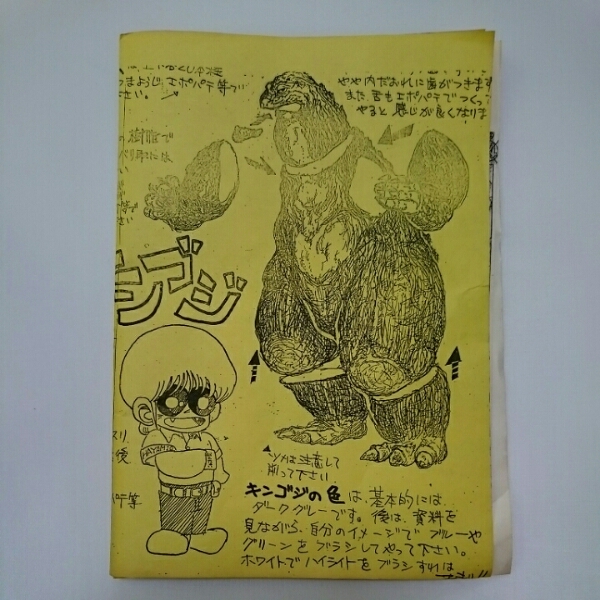 まようじ、エポパテ等で
さい。
やや内だおれに歯がつきます
また舌もエポパテでつくって
やると感じが良くなりま
樹脂で
キンゴジ
ツメは注意して
削って下さい
後
パテ等
キンゴジの色は、基本的には、
ダークグレーです。後は、資料を
見ながら、自分のイメージでブルーや
グリーンをブラシしてやって下さい。
ホワイトでハイライトをブラシすれば